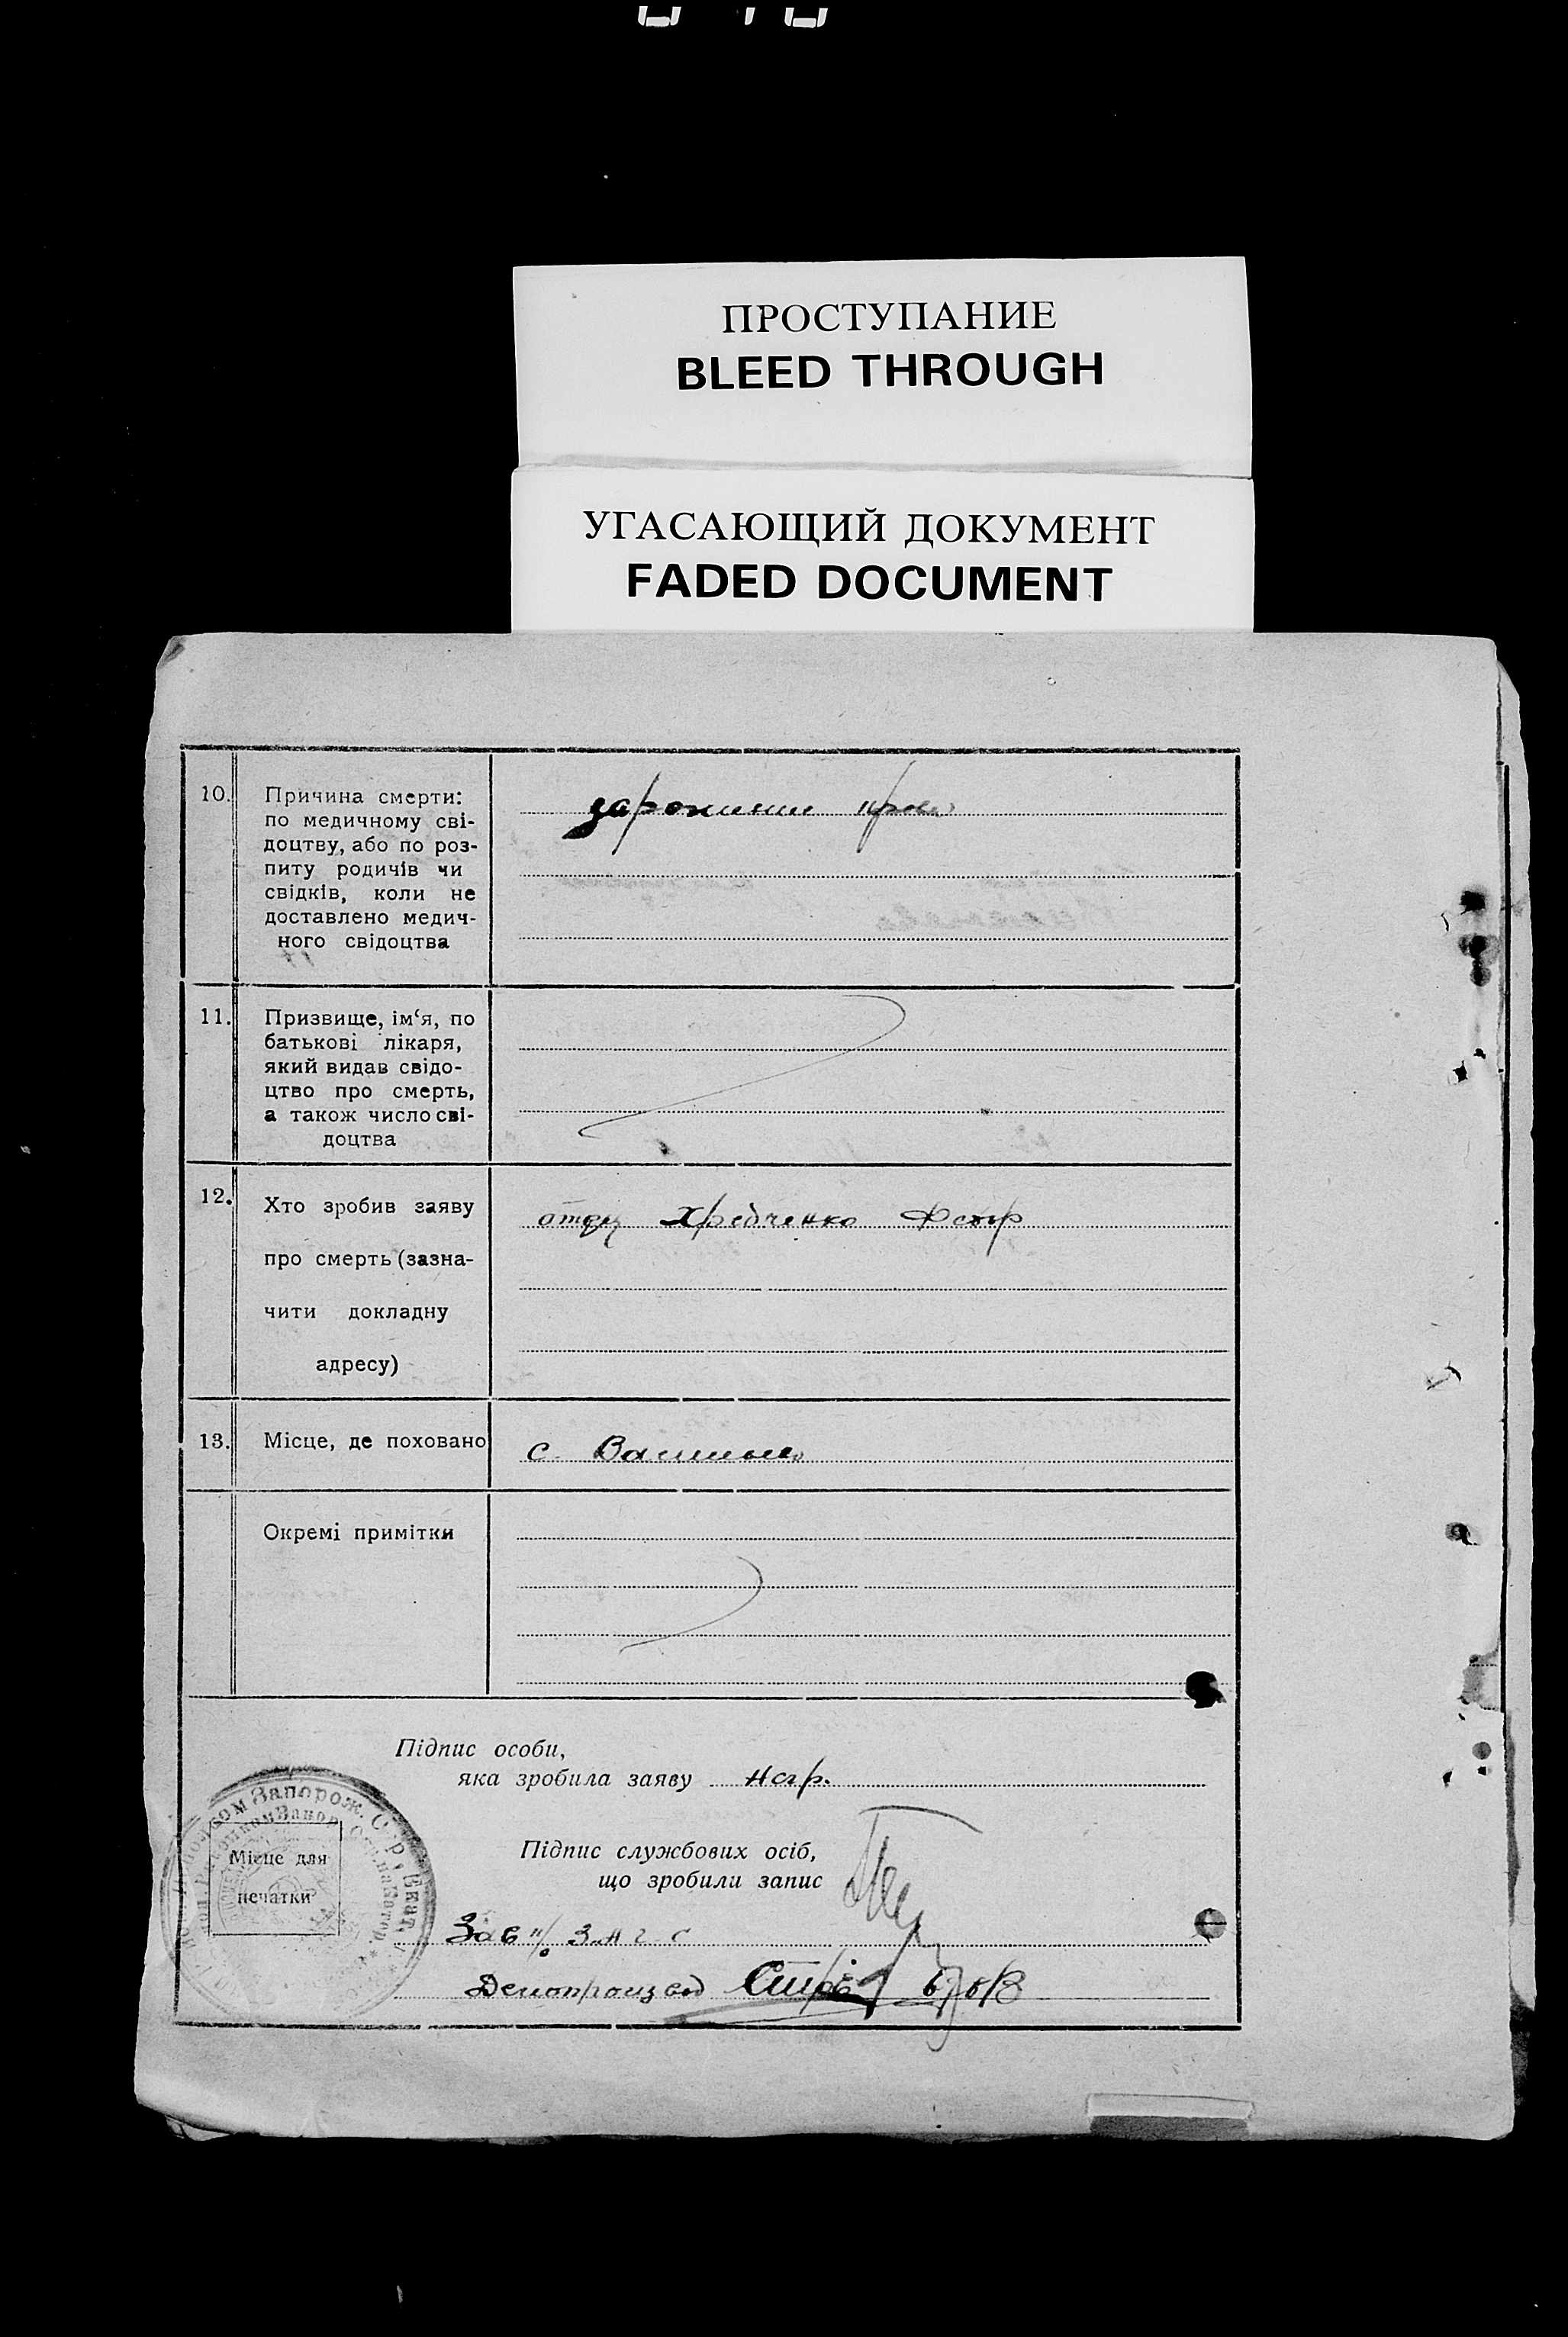 ПРОСТУПАНИЕ
BLEED THROUGH
УГАСАЮЩИЙ ДОКУМЕНТ
FADED DOCUMENT
10. Причина смерти:
по медичному сві-
доцтву, або по роз-
питу родичів чи
свідків, коли не
доставлено медич-
ного свідоцтва
11. Призвище, ім‘я, по
батькові лікаря,
який видав свідо-
цтво про смерть,
а також число сві-
доцтва
12. Хто зробив заяву
про смерть (зазна-
чити докладну
адресу)
отец Хребченко
13. Місце, де поховано
с.
Окремі примітки
Підпис особи,
яка зробила заяву негр.
Підпис службових осіб,
що зробили запис
Місце для
печатки
Запорож.
Зав п/о ЗАГС
Делопроизвод